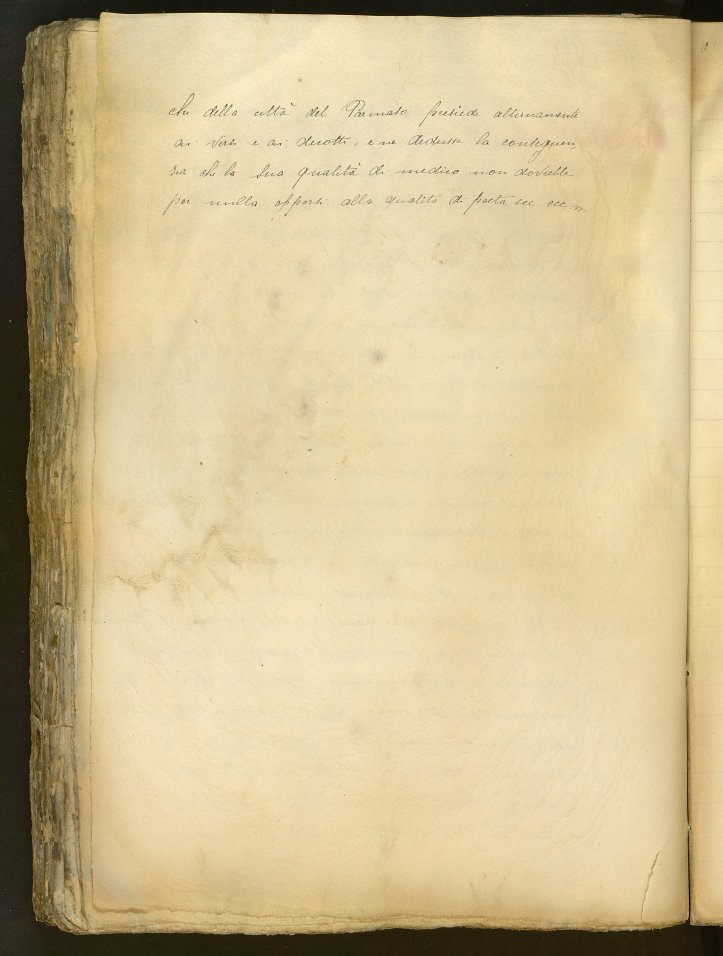 che della città del Parnaso presiede alternamente
ai versi e ai decotti, e ne dedusse la conseguen
za che la sua qualità di medico non dovrebbe
per nulla opporsi alla qualità di poeta ecc. ecc. ».